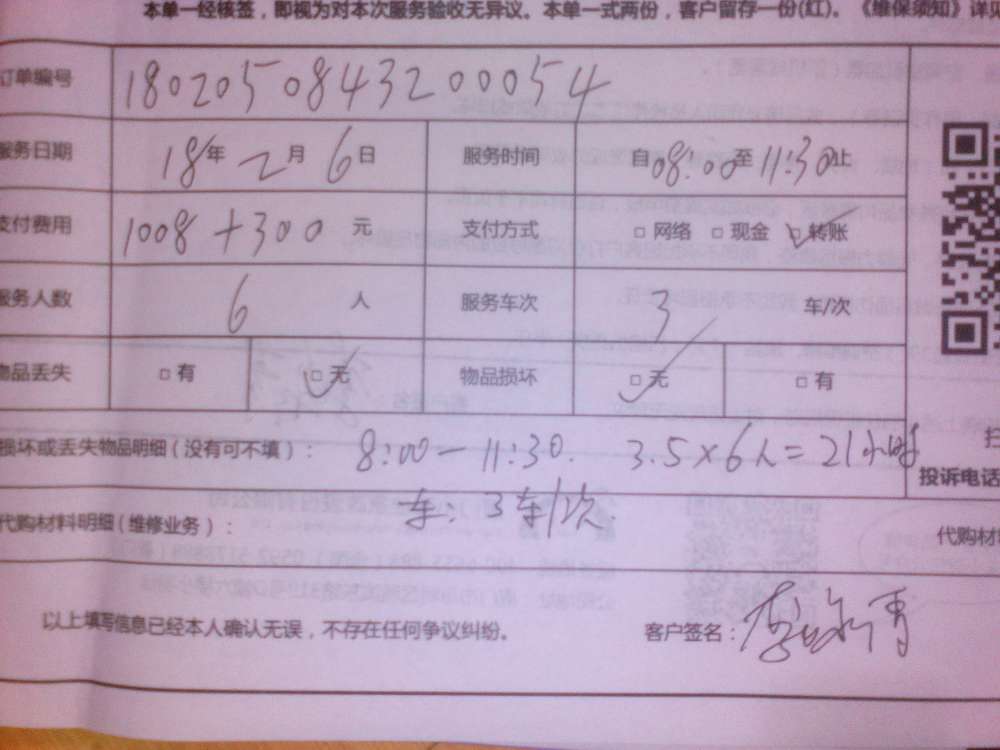 本单一经核签，即视为对本次服务验收无异议。本单一式两份，客户留存一份(红)。《维保须知》详见
订单编号 18020508432000054
服务日期 18年2月6日 服务时间 自08:00至11:30止
支付费用 1008+300 元 支付方式 □ 网络 □ 现金 □ 转账
服务人数 6 人 服务车次 3 车/次
物品丢失 □ 有 □ 无 物品损坏 □ 无 □ 有
损坏或丢失物品明细（没有可不填）： 8:00－11:30. 3.5×6人=21小时
投诉电话
车: 3车/次
代购材料明细（维修业务）： 代购材
以上填写信息已经本人确认无误，不存在任何争议纠纷。 客户签名：